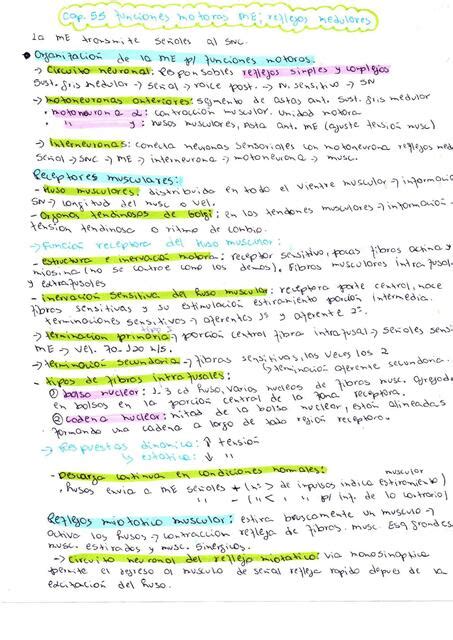 Cap. 55 funciones motoras ME; reflejos medulares
La ME transmite señales al SNC.
Organización de la ME p/ funciones motoras.
→ Circuito neuronal: Responsables reflejos simples y complejos
Sust. gris medular → señal → raíce post. → N. sensitivo → SN
→ motoneuronas anteriores: segmento de astas ant. sust. gris medular
• motoneurona α: contracción muscular. Unidad motora
• " γ: husos musculares, asta ant. ME (ajuste tensión musc)
→ Interneuronas: conecta neuronas sensoriales con motoneurona reflejos med
Señal → SNC → ME → interneurona → motoneurona → musc.
Receptores musculares:
- Huso musculares, distribuida en todo el vientre muscular → informació
SN → longitud del musc o vel.
- Organos tendinosos de Golgi: en los tendones musculares → información
tensión tendinosa o ritmo de cambio.
→ Función receptora del huso muscular:
- estructura e inervación motora: receptor sensitivo, pocas fibras actina y
miosina (no se contrae como los demas), Fibras musculares intrafusal
y extrafusales
- inervación sensitiva del huso muscular: receptora parte central, nace
fibras sensitivas y su estimulación estiramiento porción intermedia.
terminaciones sensitivas → aferentes 1º y aferente 2º.
tipo I
- terminacion primaria → porción central fibra intrafusal → señales sensi
ME → vel. 70-120 m/s.
- terminación secundaria → fibras sensitivas, las veces los 2
↳ terminación aferente secundaria.
- tipos de fibras intrafusales:
① bolsa nuclear: 1-3 cd huso, varios nucleos de fibras musc. agregado
en bolsas en la porción central de la zona receptora.
② cadena nuclear: mitad de la bolsa nuclear, están alineadas
formando una cadena a largo de todo región receptora.
→ Respuestas dinámica: ↑ tensión
↳ estatica: ↓ "
- Descarga continua en condiciones normales: muscular
. Husos envia a ME señales + (nº > de impulsos indica estiramiento)
" " - ( " < " " p/ inf. de lo contrario)
Reflejos miotatico muscular: estira bruscamente un musculo →
activa los husos → contracción refleja de fibras. musc. Esq grandes
musc. estirados y musc. sinergicos.
→ Circuito neuronal del reflejo miotatico: via monosináptica
permite el regreso al musculo de señal refleja rapido depues de la
exitación del huso.